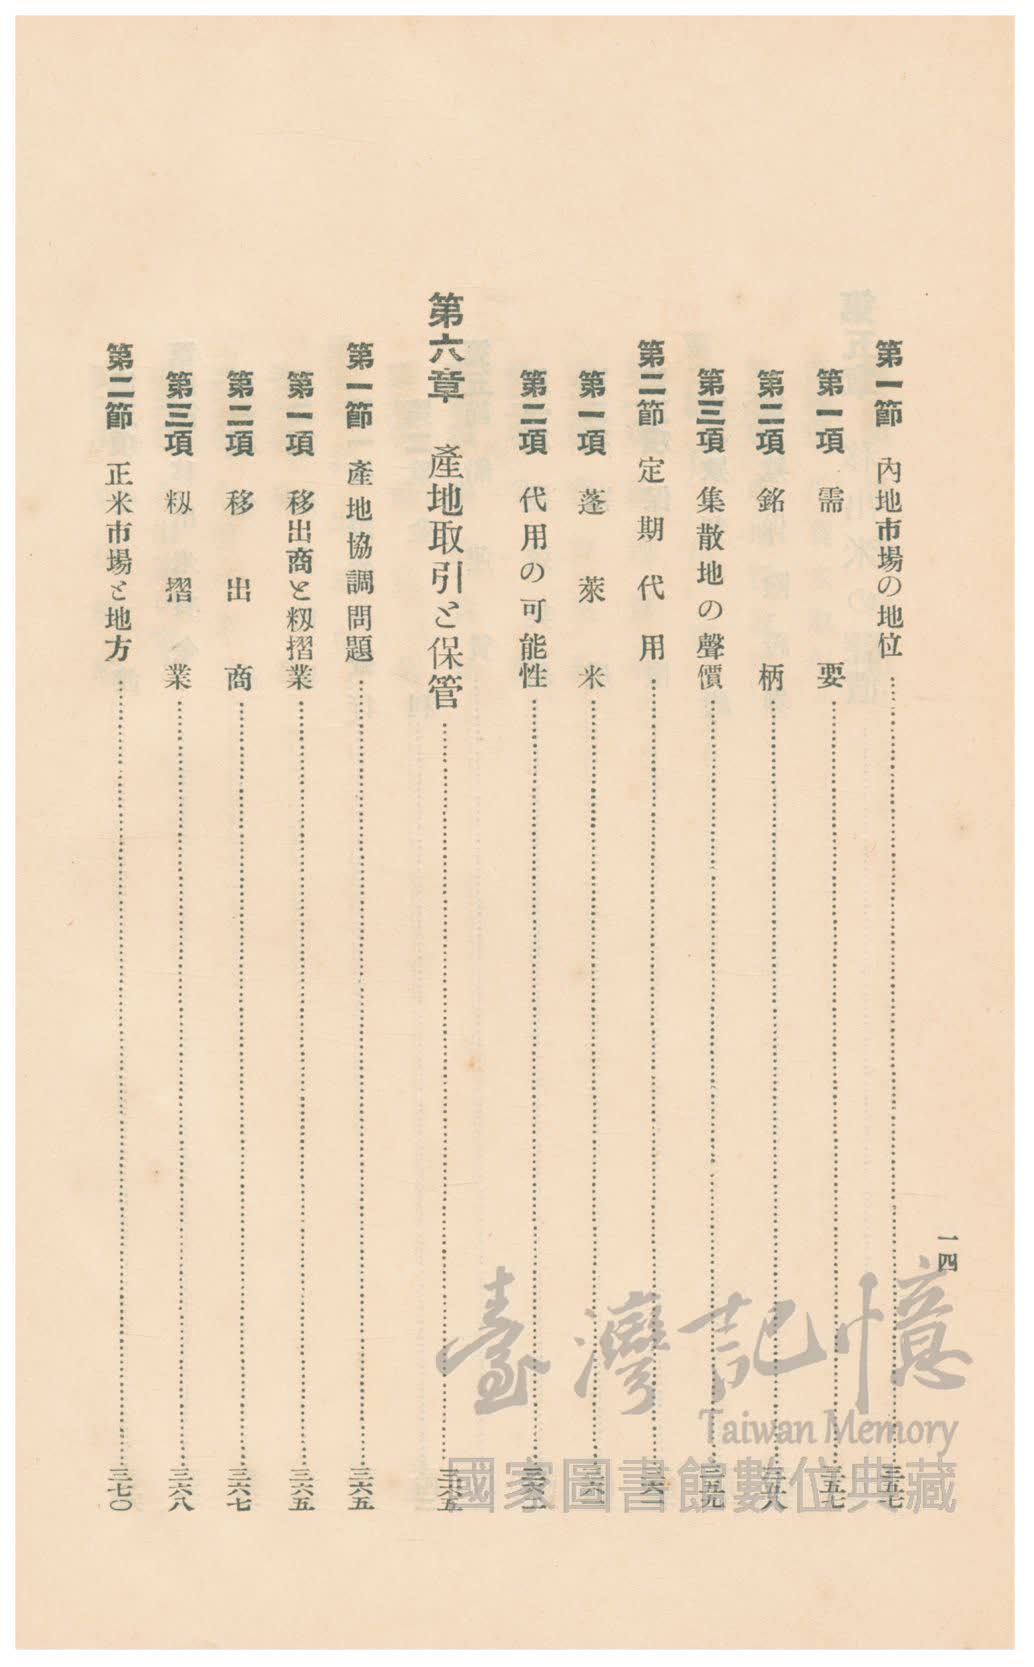 一四
第一節 內地市場の地位……三五七
第一項 需要……三五七
第二項 銘柄……三五八
第三項 集散地の聲價……三五九
第二節 定期代用……三六一
第一項 蓬萊米……三六一
第二項 代用の可能性
第六章 產地取引と保管……三六五
第一節 產地協調問題……三六五
第一項 移出商と籾摺業……三六五
第二項 移出商……三六七
第三項 籾摺業……三六八
第二節 正米市場と地方……三七〇
臺灣記憶
Taiwan Memory
國家圖書館數位典藏